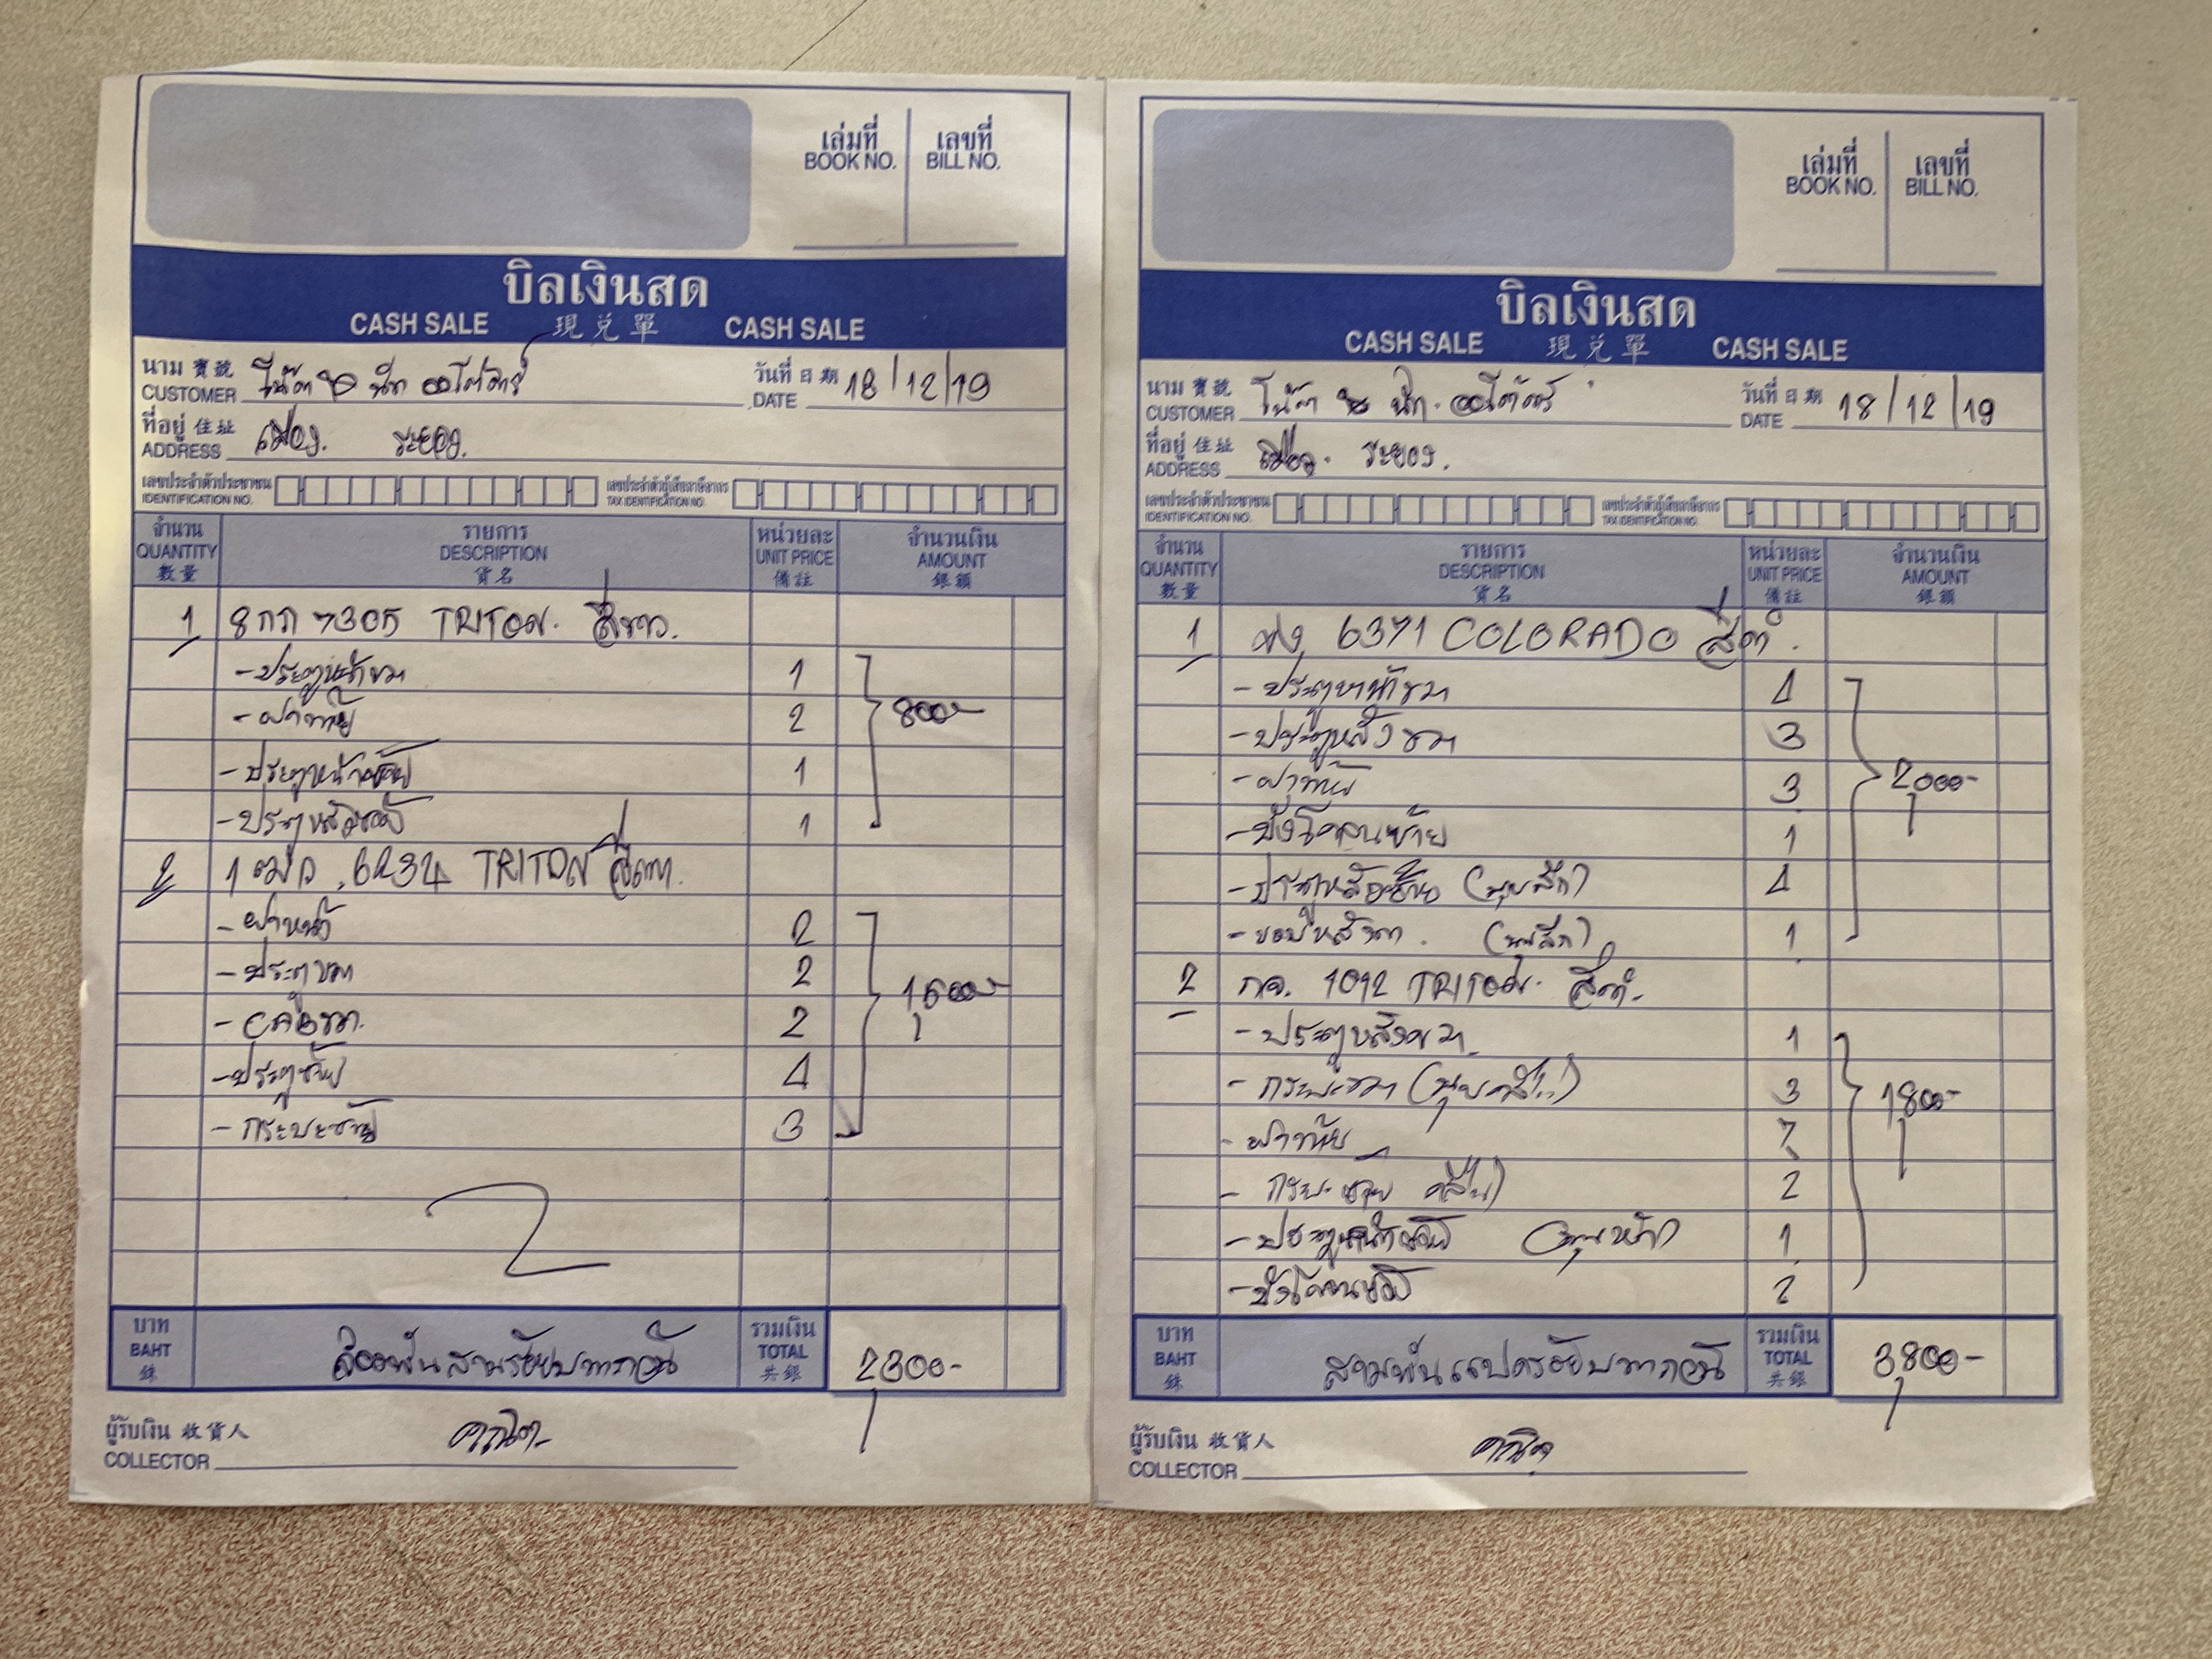 เล่มที่ เลขที่
BOOK NO. BILL NO.
บิลเงินสด
CASH SALE 現兌單 CASH SALE
นาม 寶號 วันที่ 日期
CUSTOMER โน๊ต & นัท ออโต้คาร์ DATE 18/12/19
ที่อยู่ 住址
ADDRESS เมือง. ระยอง.
เลขประจำตัวประชาชน เลขประจำตัวผู้เสียภาษีอากร
IDENTIFICATION NO. TAX IDENTIFICATION NO.
จำนวน รายการ หน่วยละ จำนวนเงิน
QUANTITY DESCRIPTION UNIT PRICE AMOUNT
數量 貨名 備註 銀額
1 8กภ 7305 TRITON. สีขาว.
-ประตูหน้าขวา 1
-ฝาท้าย 2 800-
-ประตูหน้าซ้าย 1
-ประตูหลังซ้าย 1
2 TRITON สีเทา.
-ฝาหน้า 2
-ประตูขวา 2
-CABขวา. 2
-ประตูซ้าย 4
-กระบะซ้าย 3
บาท รวมเงิน
BAHT สองพันสามร้อยบาทถ้วน TOTAL 2300-
銖 共銀
ผู้รับเงิน 收貨人
COLLECTOR
เล่มที่ เลขที่
BOOK NO. BILL NO.
บิลเงินสด
CASH SALE 現兌單 CASH SALE
นาม 寶號 วันที่ 日期
CUSTOMER โน๊ต & นัท. ออโต้คาร์ DATE 18/12/19
ที่อยู่ 住址
ADDRESS เมือง. ระยอง.
เลขประจำตัวประชาชน เลขประจำตัวผู้เสียภาษีอากร
IDENTIFICATION NO. TAX IDENTIFICATION NO.
จำนวน รายการ หน่วยละ จำนวนเงิน
QUANTITY DESCRIPTION UNIT PRICE AMOUNT
數量 貨名 備註 銀額
1 6371 COLORADO สีดำ.
-ประตูหน้าขวา 4
-ประตูหลังขวา 3
-ฝาท้าย 3 2000-
-บังโคลนซ้าย 1
-ประตูหลังซ้าย (บุบลึก) 4
-ขอบหลังคา. (บุบลึก) 1
2 กจ. 1012 TRITON. สีดำ.
-ประตูหลังขวา 1
-กระบะขวา 3 1800-
-ฝาท้าย 7
-กระบะซ้าย 2
-ประตูหน้าซ้าย 1
-บังโคลนซ้าย 2
บาท รวมเงิน
BAHT สามพันแปดร้อยบาทถ้วน TOTAL 3,800-
銖 共銀
ผู้รับเงิน 收貨人
COLLECTOR